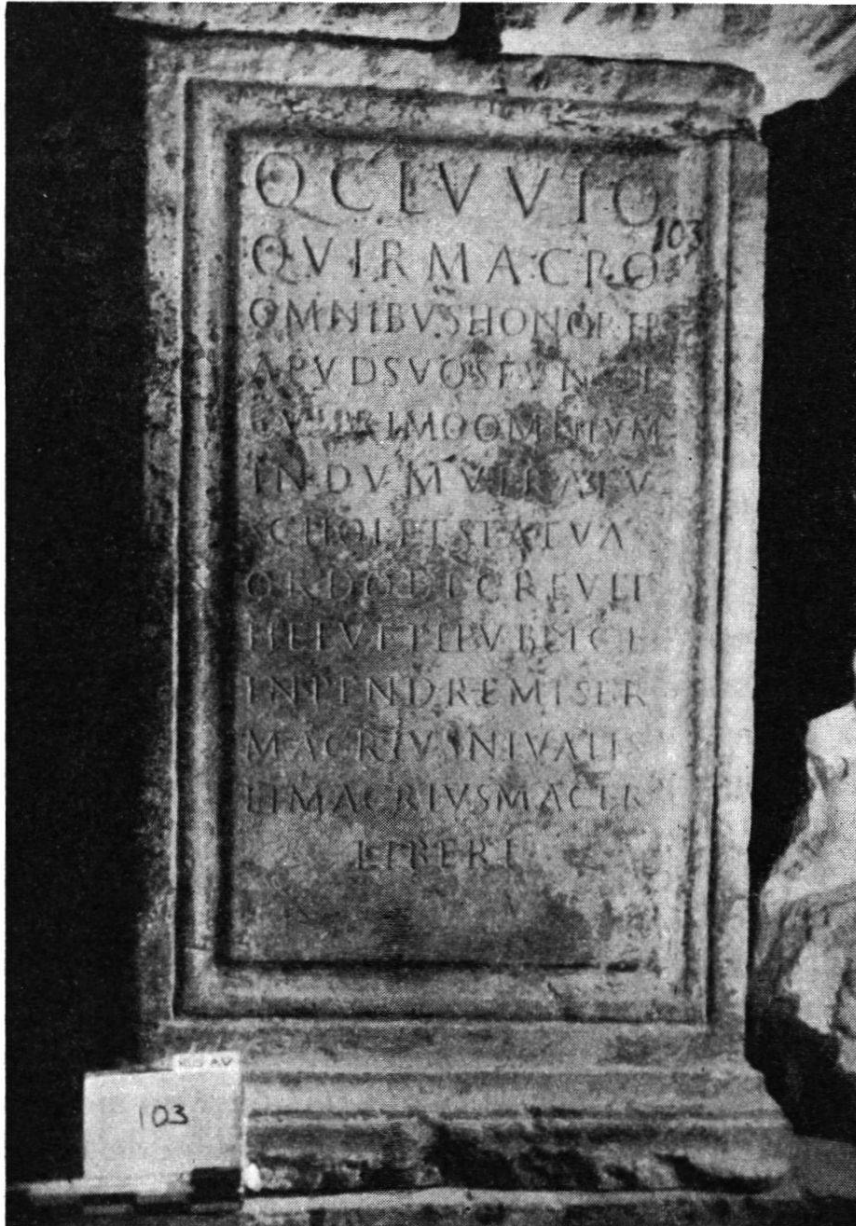 Q CLVVIO
103
QVIR MACRO
OMNIBVS HONORIB
APVD SVOS FVNCT
CVI PRIMO OMNIVM
IN DVMVIRATV
SCHOL ET STATVAS
ORDO DECREVIT
HELVETII PVBLICE
INPEND REMISER
MACRIVS NIVALIS
ET MACRIVS MACER
LIBERI
103